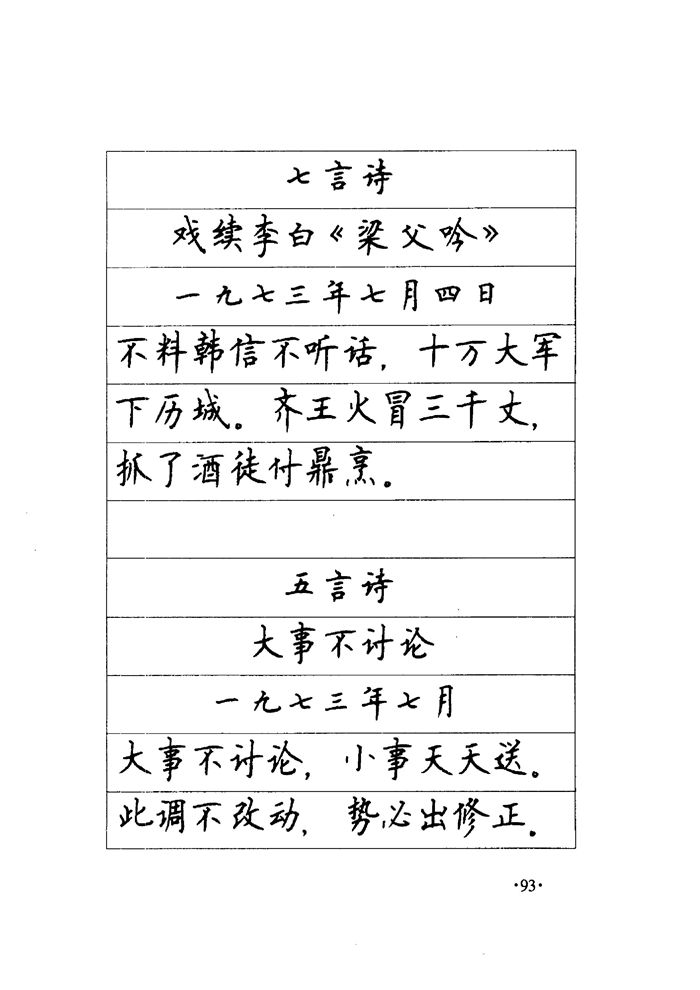 七言诗
戏续李白《梁父吟》
一九七三年七月四日
不料韩信不听话，十万大军
下历城。齐王火冒三千丈，
抓了酒徒付鼎烹。
五言诗
大事不讨论
一九七三年七月
大事不讨论，小事天天送。
此调不改动，势必出修正。
·93·